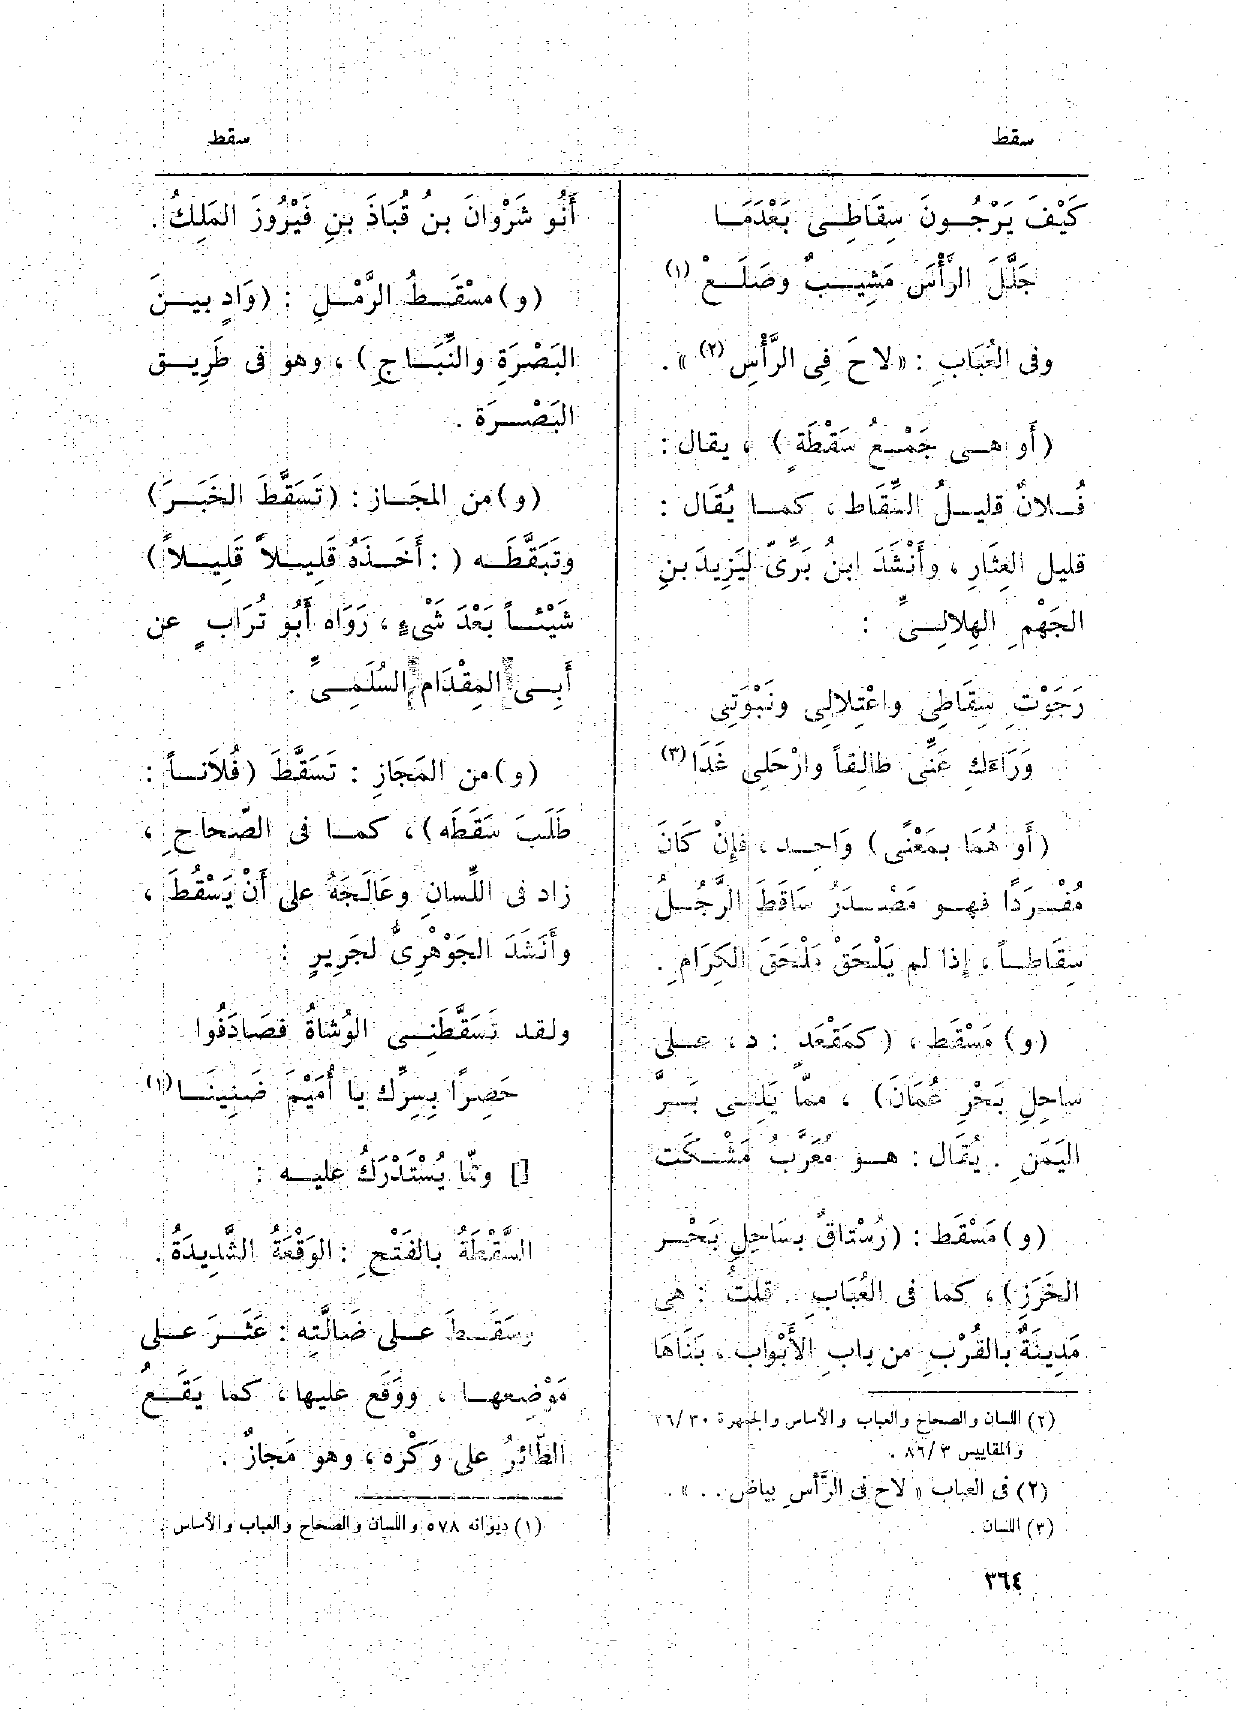 سقط
سقط
كَيْفَ يَرْجُــونَ سِقَاطِــى بَعْدَمَــا
جَلَّلَ الرَّأْسَ مَشِيــبٌ وصَلَــعْ (١)
وفى العُبَابِ : « لاحَ فِى الرَّأْسِ (٢) » .
( أَو هــى جَمْــعُ سَقْطَةٍ ) ، يقال :
فُــلانٌ قليــلُ السِّقَاط ، كمــا يُقَال :
قليل العِثَارِ ، وأَنْشَدَ ابنُ بَرِّىّ لِيَزِيدَ بنِ
الجَهْمِ الهِلالــىِّ :
رَجَوْتِ سِقَاطِى واعْتِلالِى ونَبْوَتِى
وَرَاءَكِ عَنِّى طالِقاً وارْحَلِى غَدَا (٣)
( أَو هُمَا بمَعْنًى ) وَاحِــد ، فإِنْ كَانَ
مُفْــرَدًا فهــو مَصْــدَرُ سَاقَطَ الرَّجُــلُ
سِقَاطــاً ، إِذا لم يَلْحَقْ مَلْحَقَ الكِرَامِ .
( و ) مَسْقَط ، ( كمَقْعَدٍ : د ، علــى
ساحِلِ بَحْرِ عُمَانَ ) ، ممّا يَلِــى بَــرَّ
اليَمَنِ . يُقَال : هــو مُعَرَّبُ مَشْــكَت
( و ) مَسْقَط : ( رُسْتَاقٌ بسَاحِلِ بَحْــر
الخَزَرِ ) ، كما فى العُبَابِ . قلتُ : هى
مَدِينَةٌ بالقُرْبِ من بابِ الأَبْوابِ ، بَنَاهَا
(٢) اللسان والصحاح والعباب والأساس والجمهرة ٣٠/ ٢٦
والمقاييس ٣/ ٨٦ .
(٢) فى العباب « لاح فى الرَّأس بياض . . » .
(٣) اللسان .
أَنُو شَرْوانَ بنُ قُبَاذَ بنِ فَيْرُوزَ المَلِكُ .
( و ) مسْقَــطُ الرَّمْــلِ : ( وَادٍ بيــنَ
البَصْرَةِ والنِّبَــاجِ ) ، وهو فى طَرِيــق
البَصْــرَة .
( و ) من المجَــاز : ( تَسَقَّطَ الخَبَــرَ )
وتَبَقَّطَــه ( : أَخَــذَهُ قَلِيــلاً قَلِيــلاً )
شَيْئــاً بَعْدَ شَىْءٍ ، رَوَاه أَبُو تُرَابٍ عن
أَبِــى المِقْدَام السُلَمِــىِّ .
( و ) من المَجَازِ : تَسَقَّطَ ( فُلاَنــاً :
طَلَبَ سَقَطَه ) ، كمــا فى الصّحاحِ ،
زاد فى اللِّسانِ وعَالَجَهُ على أَنْ يَسْقُطَ ،
وأَنْشَدَ الجَوْهَرِىُّ لجَرِيرٍ :
ولقد تَسَقَّطَنِــى الوُشاةُ فصَادَفُوا
حَصِرًا بِسِرِّك يا أُمَيْمَ ضَنِينَــا (١)
[] وممّا يُسْتَدْرَكُ عليــه :
السَّقْطَةُ بالفَتْحِ : الوَقْعَةُ الشَّدِيدَةُ .
وسَقَــطَ علــى ضَالَّتِه : عَثَــرَ علــى
مَوْضِعهــا ، ووَقَع عليها ، كما يَقَــعُ
الطّائرُ على وَكْرِه ، وهو مَجازٌ .
(١) ديوانه ٥٧٨ واللسان والصحاح والعباب والأساس .
٣٦٤